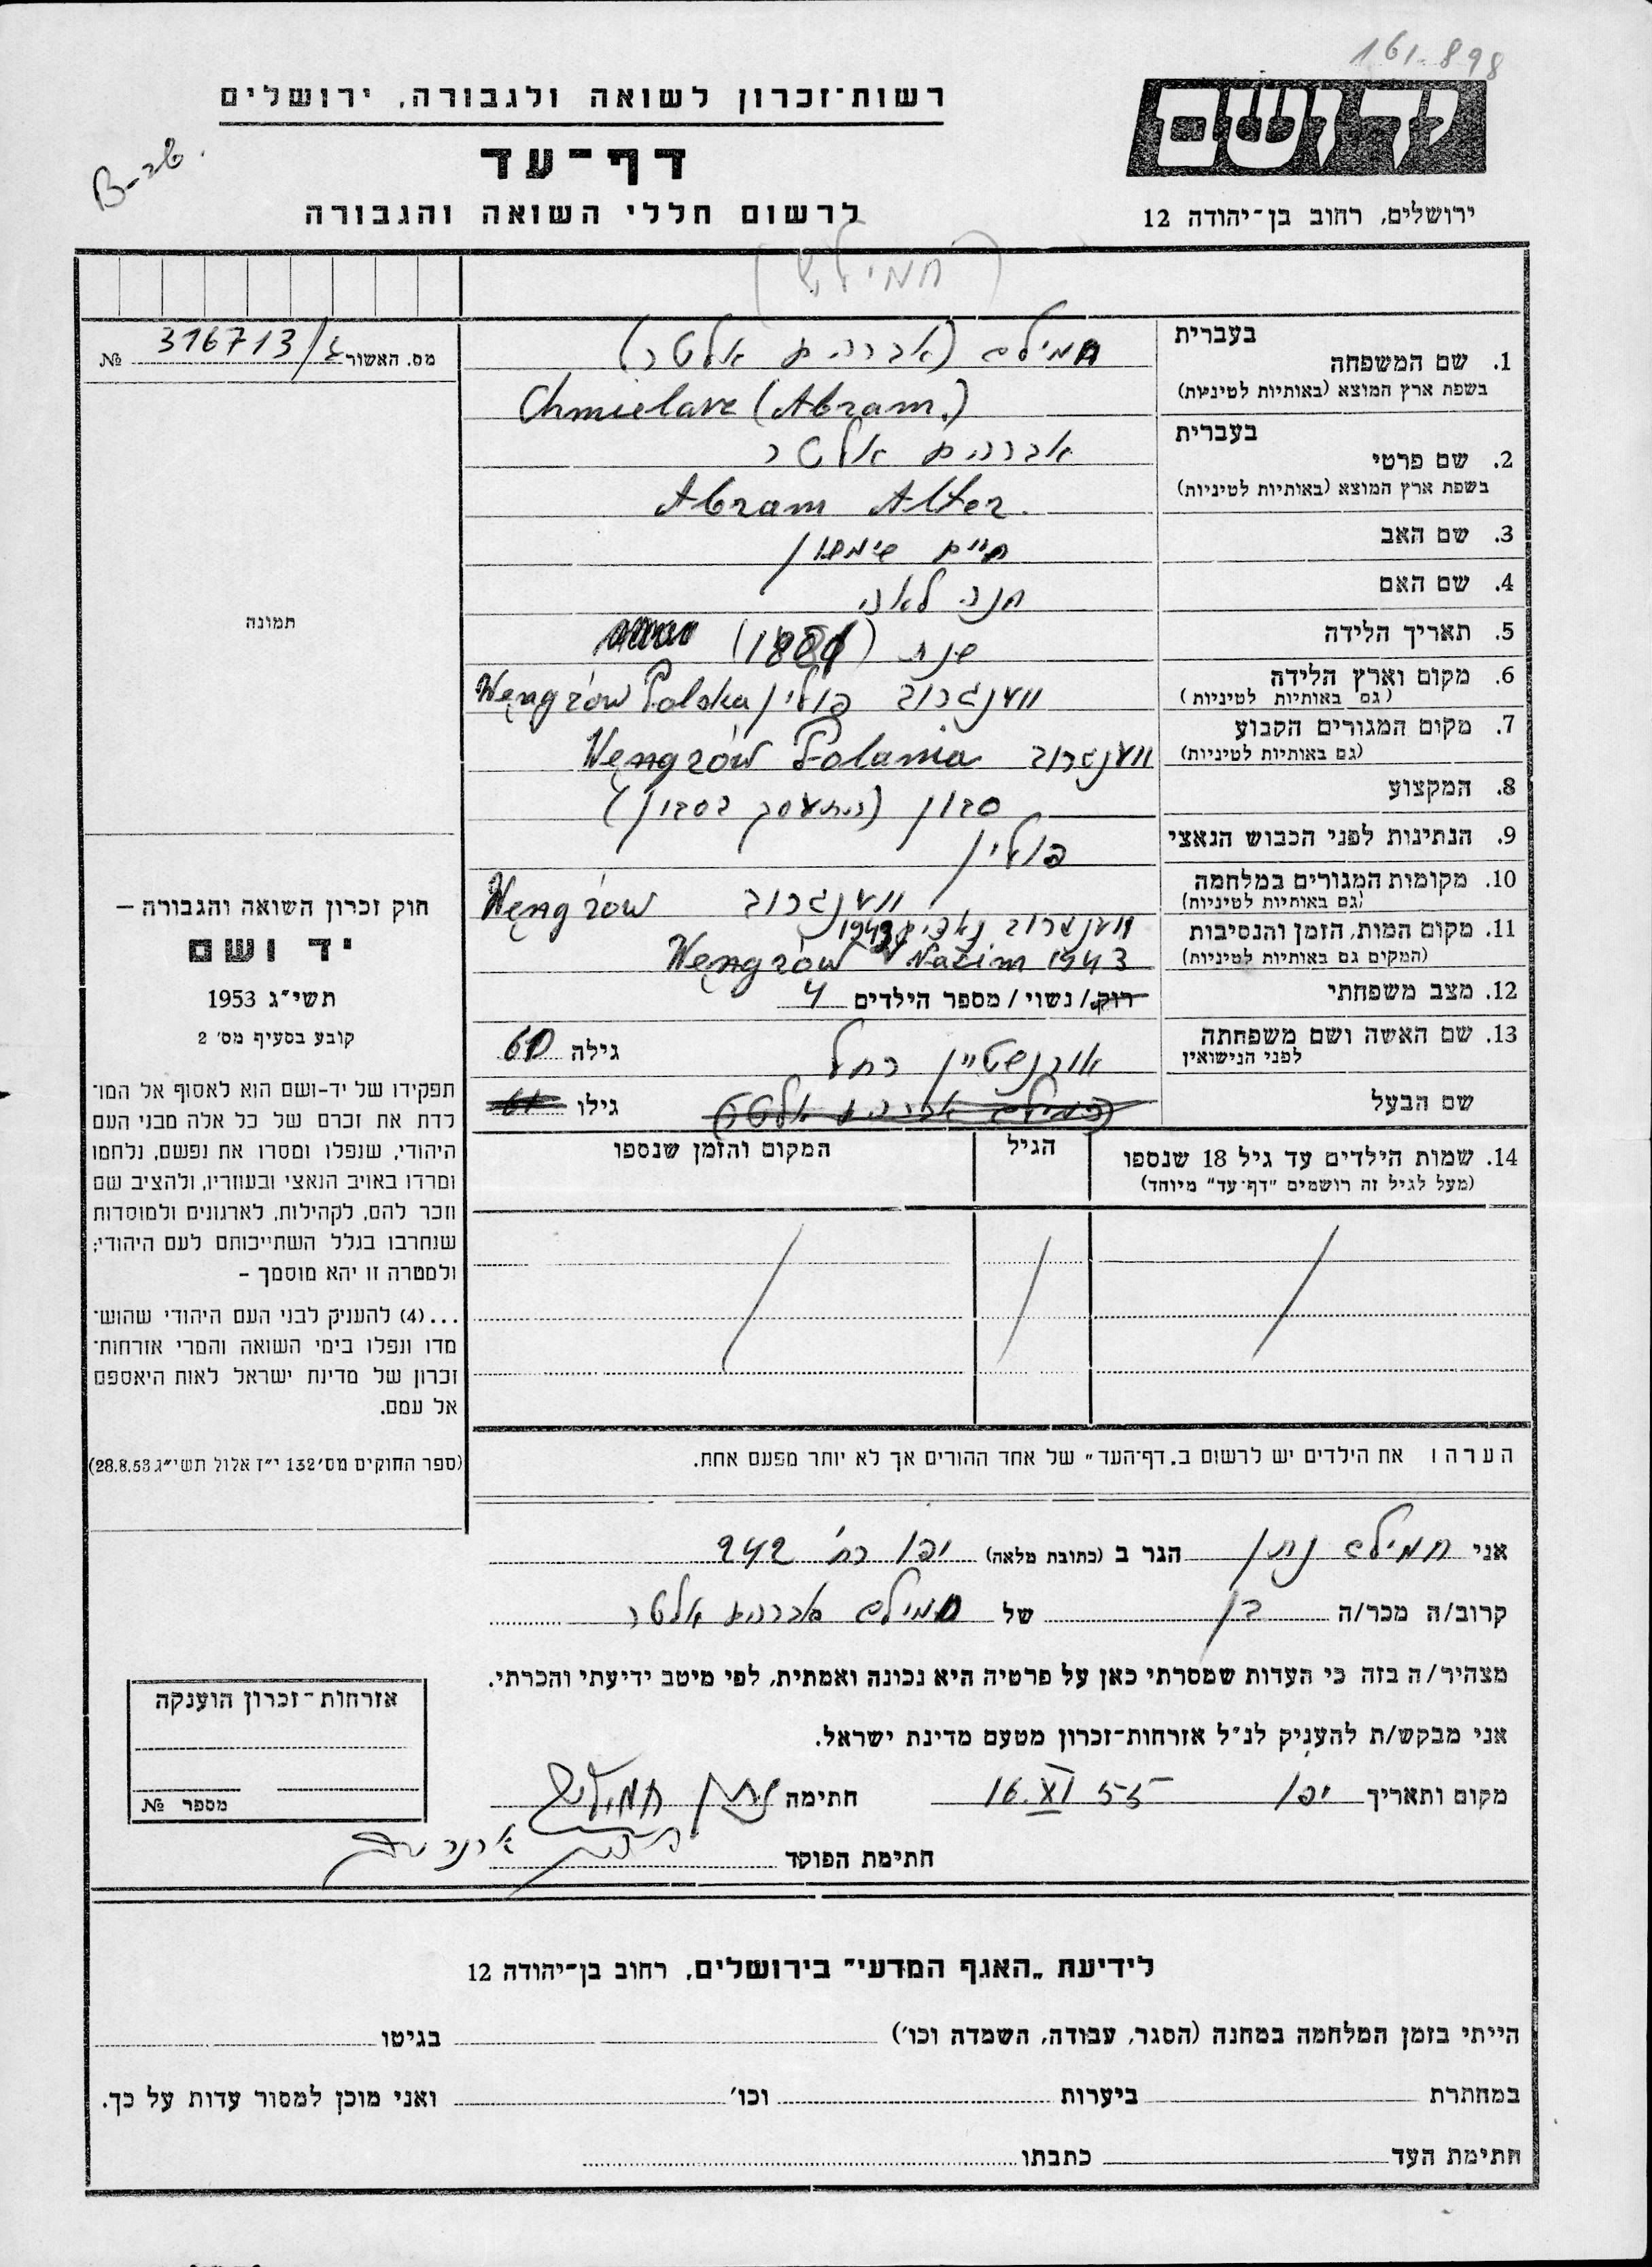 161-898
רשות־זכרון לשואה ולגבורה, ירושלים
יד ושם
דף־עד
לרשום חללי השואה והגבורה
ירושלים, רחוב בן־יהודה 12
מס. האשור 316713/ №
בעברית
1. שם המשפחה
חמילב (אברהם אלטר)
בשפת ארץ המוצא (באותיות לטיניות)
(Abram.)
בעברית
2. שם פרטי
אברהם אלטר
בשפת ארץ המוצא (באותיות לטיניות)
Abram Alter.
3. שם האב
חיים שימשון
4. שם האם
חנה לאה
5. תאריך הלידה
שנת
6. מקום וארץ הלידה
(גם באותיות לטיניות)
ווענגרוב פולין Węngrów Polska
7. מקום המגורים הקבוע
(גם באותיות לטיניות)
ווענגרוב Węngrów Polania
8. המקצוע
9. הנתינות לפני הכבוש הנאצי
פולין
10. מקומות המגורים במלחמה
(גם באותיות לטיניות)
ווענגרוב Węngrów
11. מקום המות, הזמן והנסיבות
(המקום גם באותיות לטיניות)
ווענגרוב נאצים 1943
Węngrów Nazim 1943
12. מצב משפחתי
רוק/ נשוי/ מספר הילדים 4
13. שם האשה ושם משפחתה
לפני הנישואין
אורנשטיין רחל
גילה 60
שם הבעל
גילו
14. שמות הילדים עד גיל 18 שנספו
(מעל לגיל זה רושמים "דף־עד" מיוחד)
הגיל
המקום והזמן שנספו
הערה ו את הילדים יש לרשום ב„דף־העד" של אחד ההורים אך לא יותר מפעם אחת.
תמונה
חוק זכרון השואה והגבורה –
יד ושם
תשי"ג 1953
קובע בסעיף מס' 2
תפקידו של יד-ושם הוא לאסוף אל המו־
לדת את זכרם של כל אלה מבני העם
היהודי, שנפלו ומסרו את נפשם, נלחמו
ומרדו באויב הנאצי ובעוזריו, ולהציב שם
וזכר להם, לקהילות, לארגונים ולמוסדות
שנחרבו בגלל השתייכותם לעם היהודי;
ולמטרה זו יהא מוסמך –
...(4) להעניק לבני העם היהודי שהוש־
מדו ונפלו בימי השואה והמרי אזרחות־
זכרון של מדינת ישראל לאות היאספם
אל עמם.
(ספר החוקים מס' 132 י"ז אלול תשי"ג 28.8.53)
אני חמילב נתן הגר ב (כתובת מלאה) יפו רח' 242
קרוב/ה מכר/ה בן של חמילב אברהם אלטר
מצהיר/ה בזה כי העדות שמסרתי כאן על פרטיה היא נכונה ואמתית, לפי מיטב ידיעתי והכרתי.
אני מבקש/ת להעניק לנ"ל אזרחות־זכרון מטעם מדינת ישראל.
מקום ותאריך יפו 16.XI 55 חתימה
חתימת הפוקד
אזרחות־זכרון הוענקה
מספר №
לידיעת „האגף המדעי" בירושלים, רחוב בן־יהודה 12
הייתי בזמן המלחמה במחנה (הסגר, עבודה, השמדה וכו') בגיטו
במחתרת ביערות וכו' ואני מוכן למסור עדות על כך.
חתימת העד כתבתו